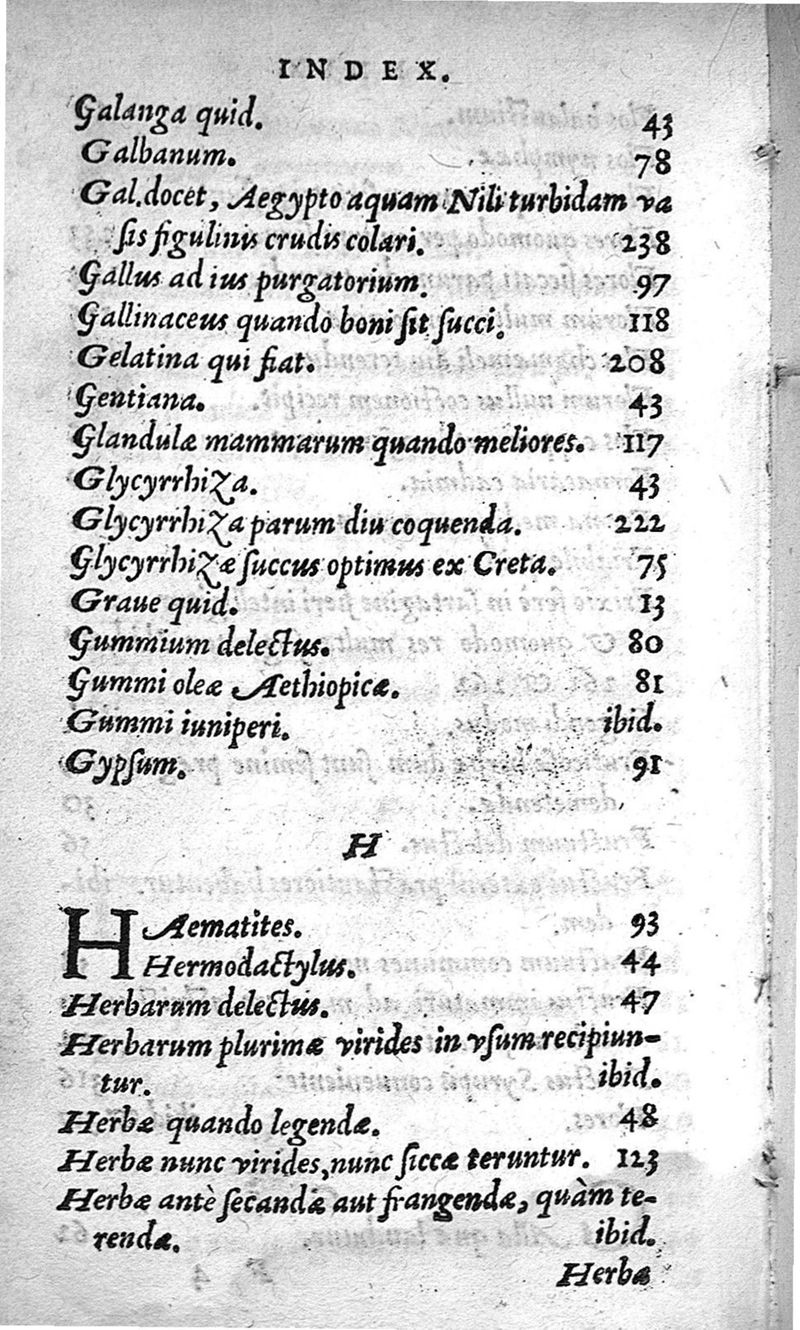 INDEX.
Galanga quid. 43
Galbanum. 78
Gal.docet, Aegypto aquam Nili turbidam va
sis figulinis crudis colari. 238
Gallus ad ius purgatorium. 97
Gallinaceus quando boni sit succi. 118
Gelatina qui fiat. 208
Gentiana. 43
Glandulæ mammarum quando meliores. 117
Glycyrrhiza. 43
Glycyrrhiza parum diu coquenda. 222
Glycyrrhizæ succus optimus ex Creta. 75
Graue quid. 13
Gummium delectus. 80
Gummi oleæ Aethiopicæ. 81
Gummi iuniperi. ibid.
Gypsum. 91
H
HAematites. 93
Hermodactylus. 44
Herbarum delectus. 47
Herbarum plurimæ virides in vsum recipiun-
tur. ibid.
Herbæ quando legendæ. 48
Herbæ nunc virides, nunc siccæ teruntur. 123
Herbæ antè secandæ aut frangendæ, quàm te-
rendæ. ibid.
Herbæ